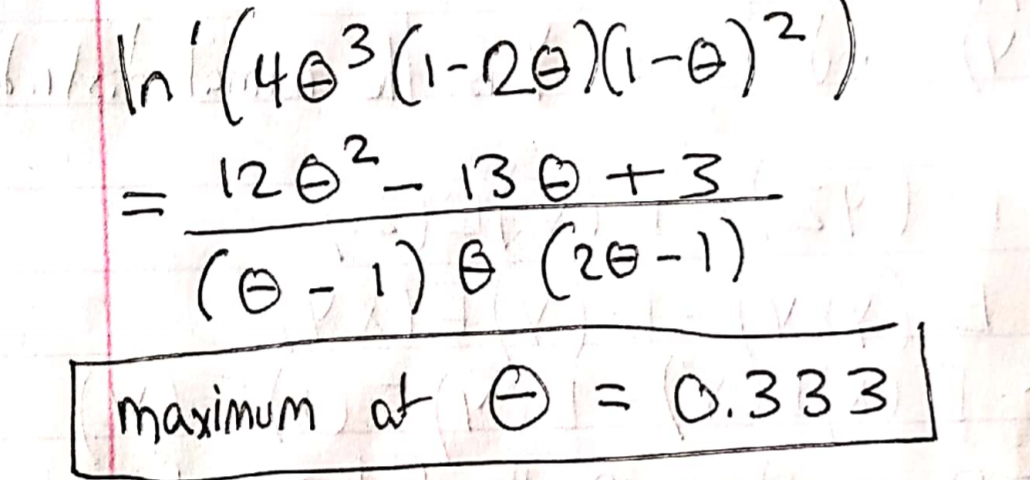 ln'(4θ³(1-2θ)(1-θ)²)
= 12θ² - 13θ + 3
(θ - 1) θ (2θ - 1)
maximum at θ = 0.333